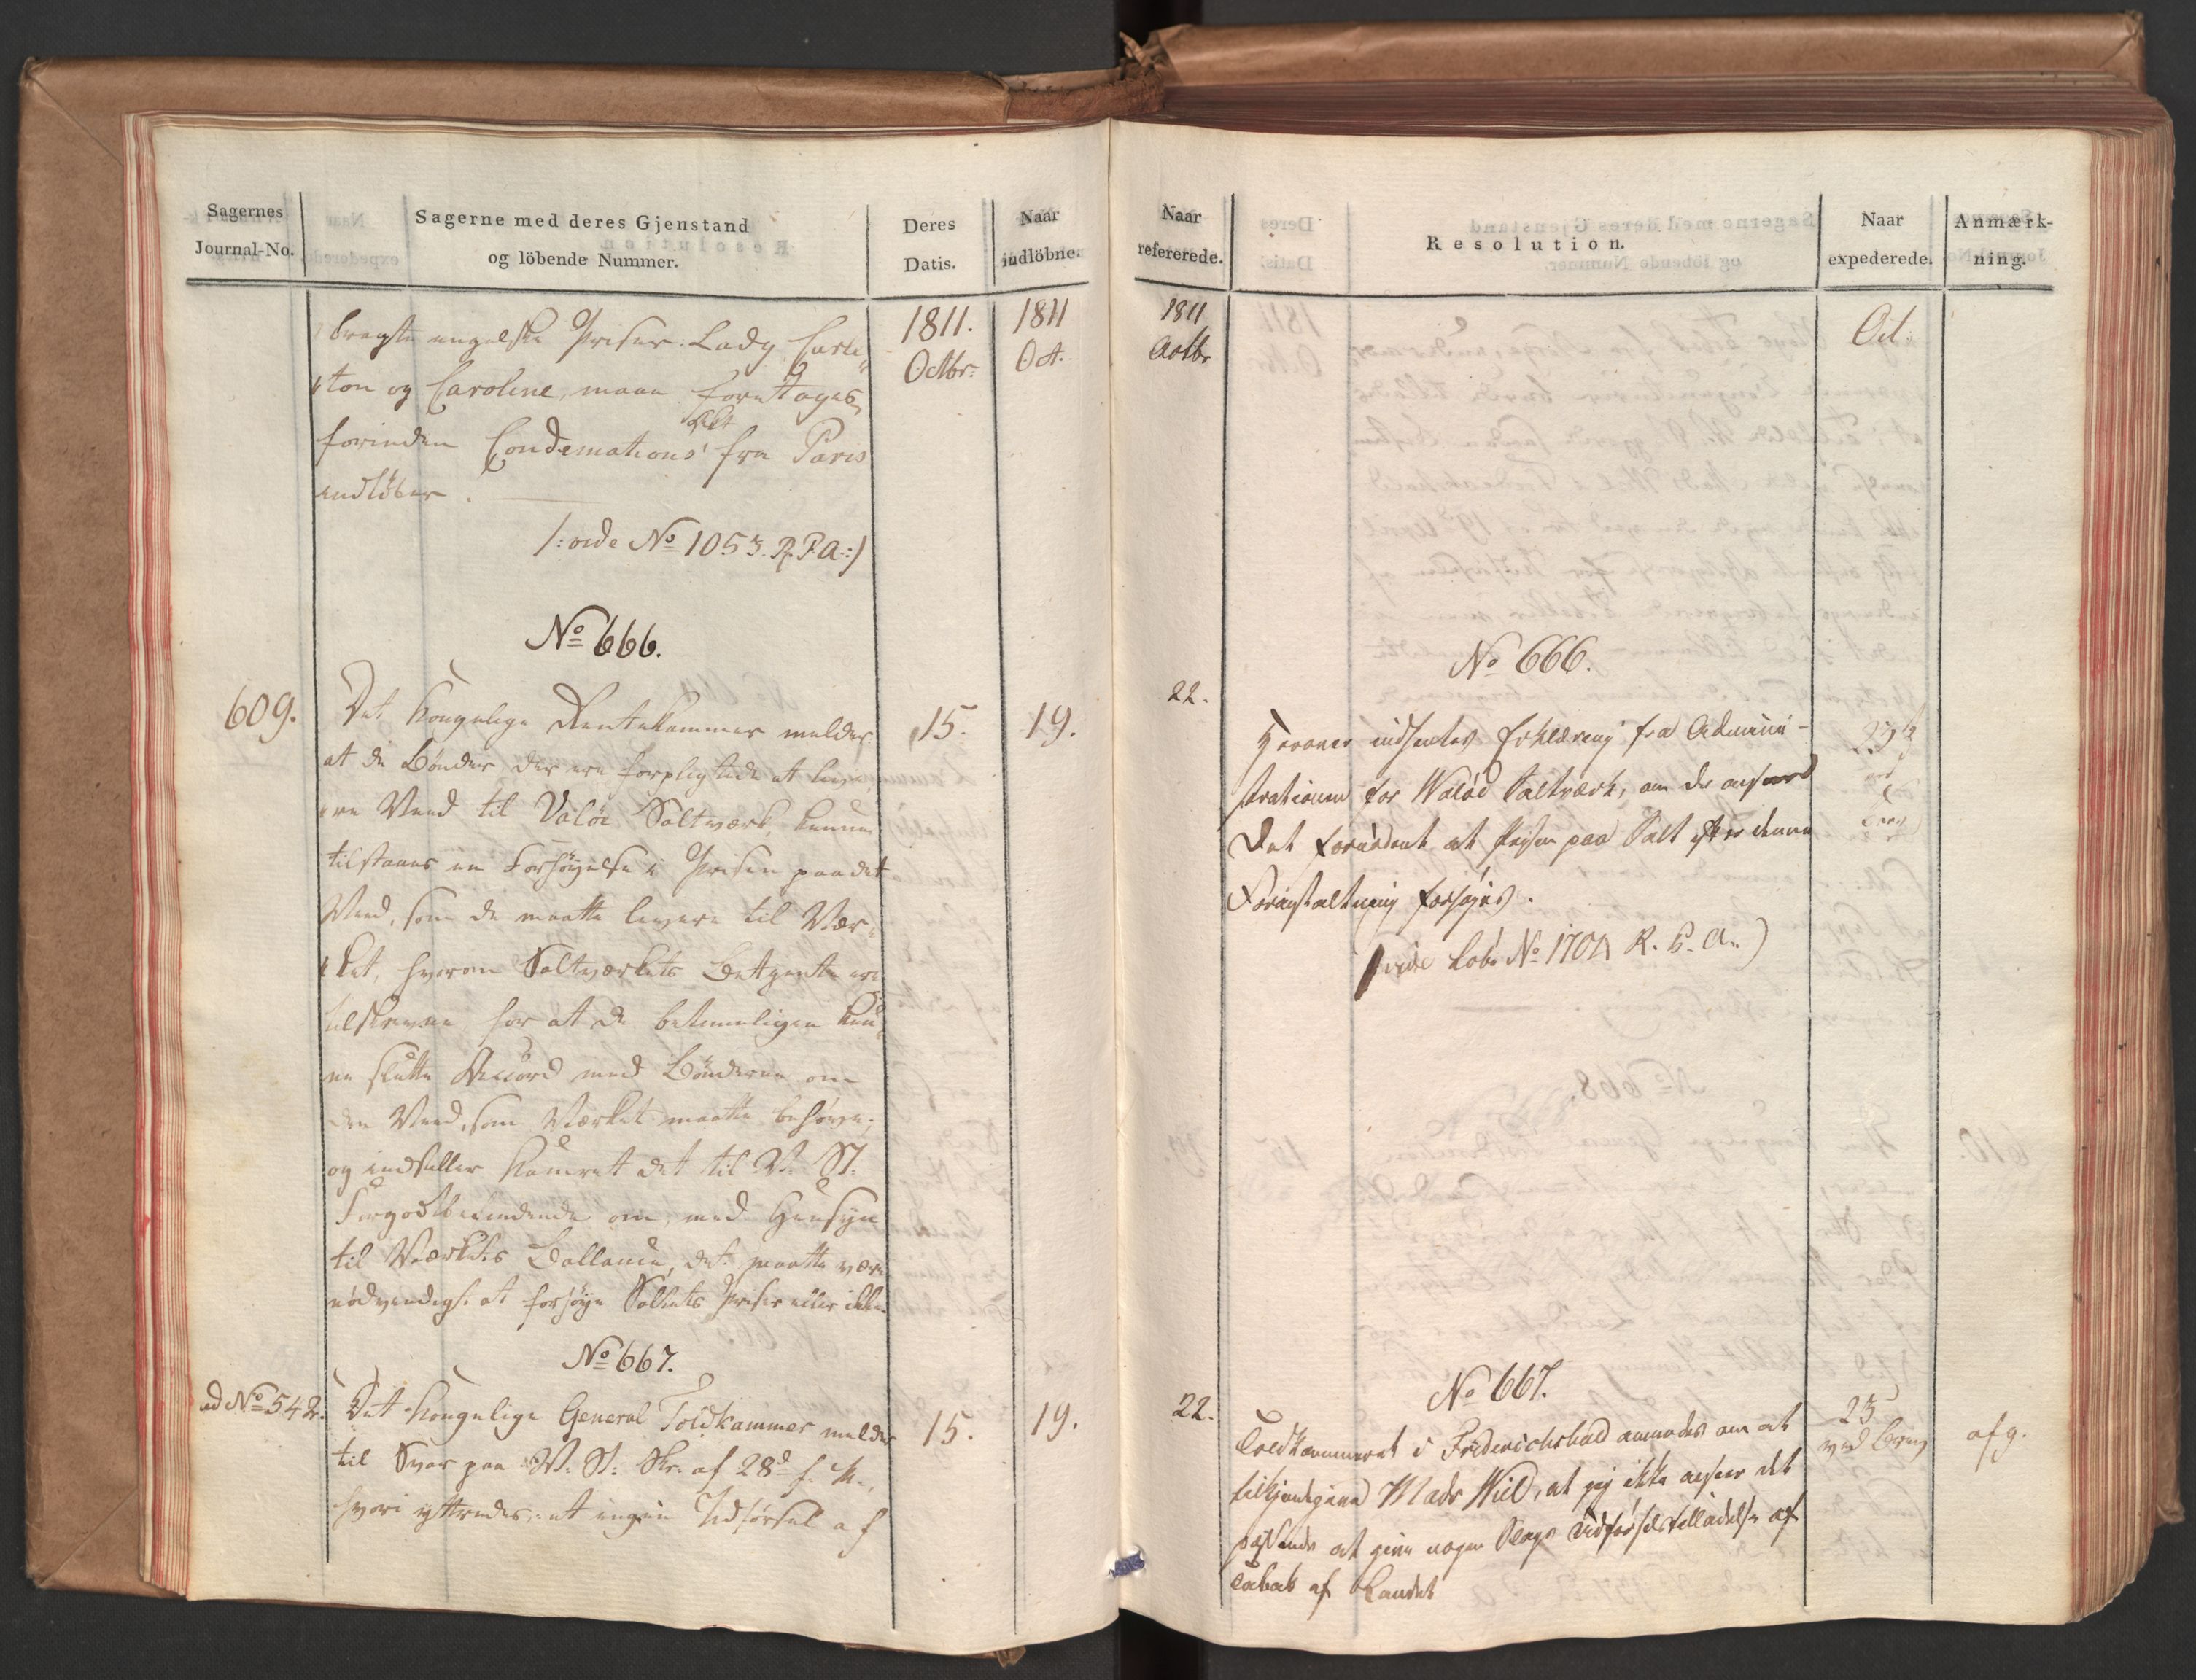 Sagernes
Journal-No.
Sagerne med deres Gjenstand
og löbende Nummer.
Deres
Datis.
Naar
indlöbne.
1811.
Octbr:
1811
Oct.
bragte engelske Priser: Lady Carle
ton og Caroline, maae foretages,
forinden Condemations Act fra Paris
indløber.
/: vide No 1053. R. P. A :/
No 666.
609.
Det kongelige Rentekammer melder
15.
19.
at de Bønder der ere forpligtede at leve
re Veed til Valöe Saltværk, kunne
tilstaaes en Forhøyelse i Prisen paa det
Veed, som de maatte levere til Vær-
ket, hvorom Saltværkets Betyente ere
tilskrevne, for at de betimeligen kun
ne slutte Accord med Bønderne om
den Veed, som Værket maatte behøve;
og indstiller Kamret det til V. St.
Forgodtbefindende om, med Hensyn
til Værkets Ballance, det maatte være
nødvendigt at forhøye Saltets Priser eller ikke.
No 667.
ad No 542.
Det kongelige General Toldkammer melder
15.
19.
til Svar paa V: St: Skr. af 28d f. M.,
hvori yttredes, at ingen Udførsel af
Naar
refererede.
Resolution.
Naar
expederede.
Anmærk-
ning.
1811
Octbr
Oct.
No 666.
22.
Herover indhentes Erklæring fra Admini-
strationen for Waløe Saltværk, om de anseer
det fornødent at Prisen paa Salt efter denne
Foranstaltning forhøjes.
(vide Lob. No 1701 R. P. A.)
No 667.
22.
Toldkammeret i Friderichshald anmodes om at
23
ved Brev
afg.
tilkjendegive Mads Wiel, at jeg ikke anseer det
passende at give nogen Slags Udførselstilladelse af
Tobak af Landet